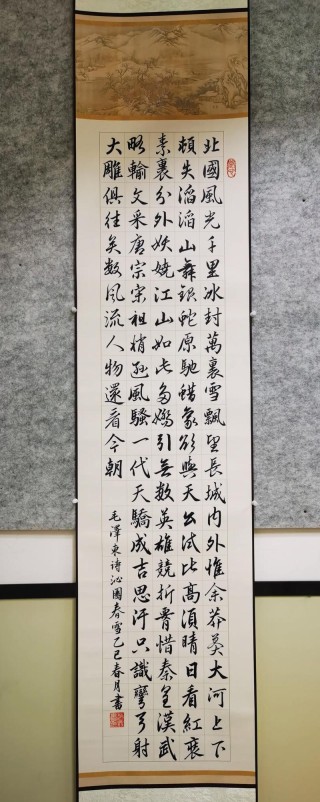 北國風光千里冰封萬裏雪飄望長城內外惟余莽莽大河上下
頓失滔滔山舞銀蛇原馳蜡象欲與天公試比高須晴日看紅裝
素裹分外妖嬈江山如此多嬌引無數英雄競折腰惜秦皇漢武
略輸文采唐宗宋祖稍遜風騷一代天驕成吉思汗只識彎弓射
大雕俱往矣數風流人物還看今朝
毛澤東詩沁園春雪乙巳春月書